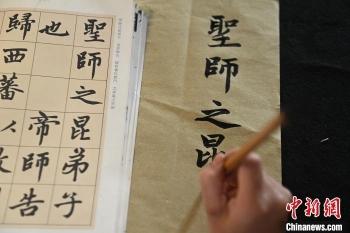 聖師之昆
聖師之昆弟子
也 帝師告
歸西蕃人
中新網
www.chinanews.com